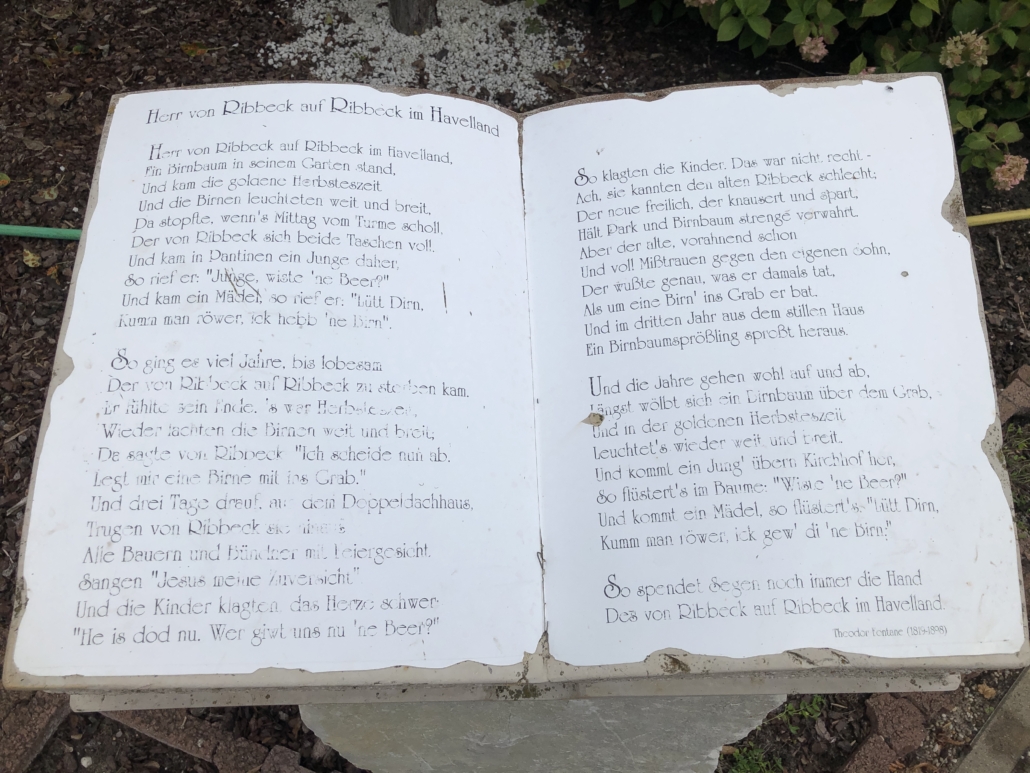 Herr von Ribbeck auf Ribbeck im Havelland
Herr von Ribbeck auf Ribbeck im Havelland,
Ein Birnbaum in seinem Garten stand,
Und kam die goldene Herbsteszeit
Und die Birnen leuchteten weit und breit,
Da stopfte, wenn's Mittag vom Turme scholl,
Der von Ribbeck sich beide Taschen voll.
Und kam in Pantinen ein Junge daher,
So rief er: "Junge, wiste 'ne Beer?"
Und kam ein Mädel, so rief er: "Lütt Dirn,
Kumm man röwer, ick hebb 'ne Birn".
So ging es viel Jahre, bis lobesam
Der von Ribbeck auf Ribbeck zu sterben kam.
Er fühlte sein Ende, 's war Herbsteszeit,
Wieder lachten die Birnen weit und breit;
Da sagte von Ribbeck "Ich scheide nun ab.
Legt mir eine Birne mit ins Grab."
Und drei Tage drauf, aus dem Doppeldachhaus,
Trugen von Ribbeck sie hinaus
Alle Bauern und Bündner mit Feiergesicht
Sangen "Jesus meine Zuversicht"
Und die Kinder klagten, das Herze schwer:
"He is dod nu. Wer giwt uns nu 'ne Beer?"
So klagten die Kinder. Das war nicht recht -
Ach, sie kannten den alten Ribbeck schlecht;
Der neue freilich, der knausert und spart,
Hält Park und Birnbaum strenge verwahrt.
Aber der alte, vorahnend schon
Und voll Mißtrauen gegen den eigenen Sohn,
Der wußte genau, was er damals tat,
Als um eine Birn' ins Grab er bat.
Und im dritten Jahr aus dem stillen Haus
Ein Birnbaumsprößling sproßt heraus.
Und die Jahre gehen wohl auf und ab,
Längst wölbt sich ein Birnbaum über dem Grab,
Und in der goldenen Herbsteszeit
Leuchtet's wieder weit und breit.
Und kommt ein Jung' übern Kirchhof her,
So flüstert's im Baume: "Wiste 'ne Beer?"
Und kommt ein Mädel, so flüstert's: "Lütt Dirn,
Kumm man röwer, ick gew' di 'ne Birn."
So spendet Segen noch immer die Hand
Des von Ribbeck auf Ribbeck im Havelland.
Theodor Fontane (1819-1898)